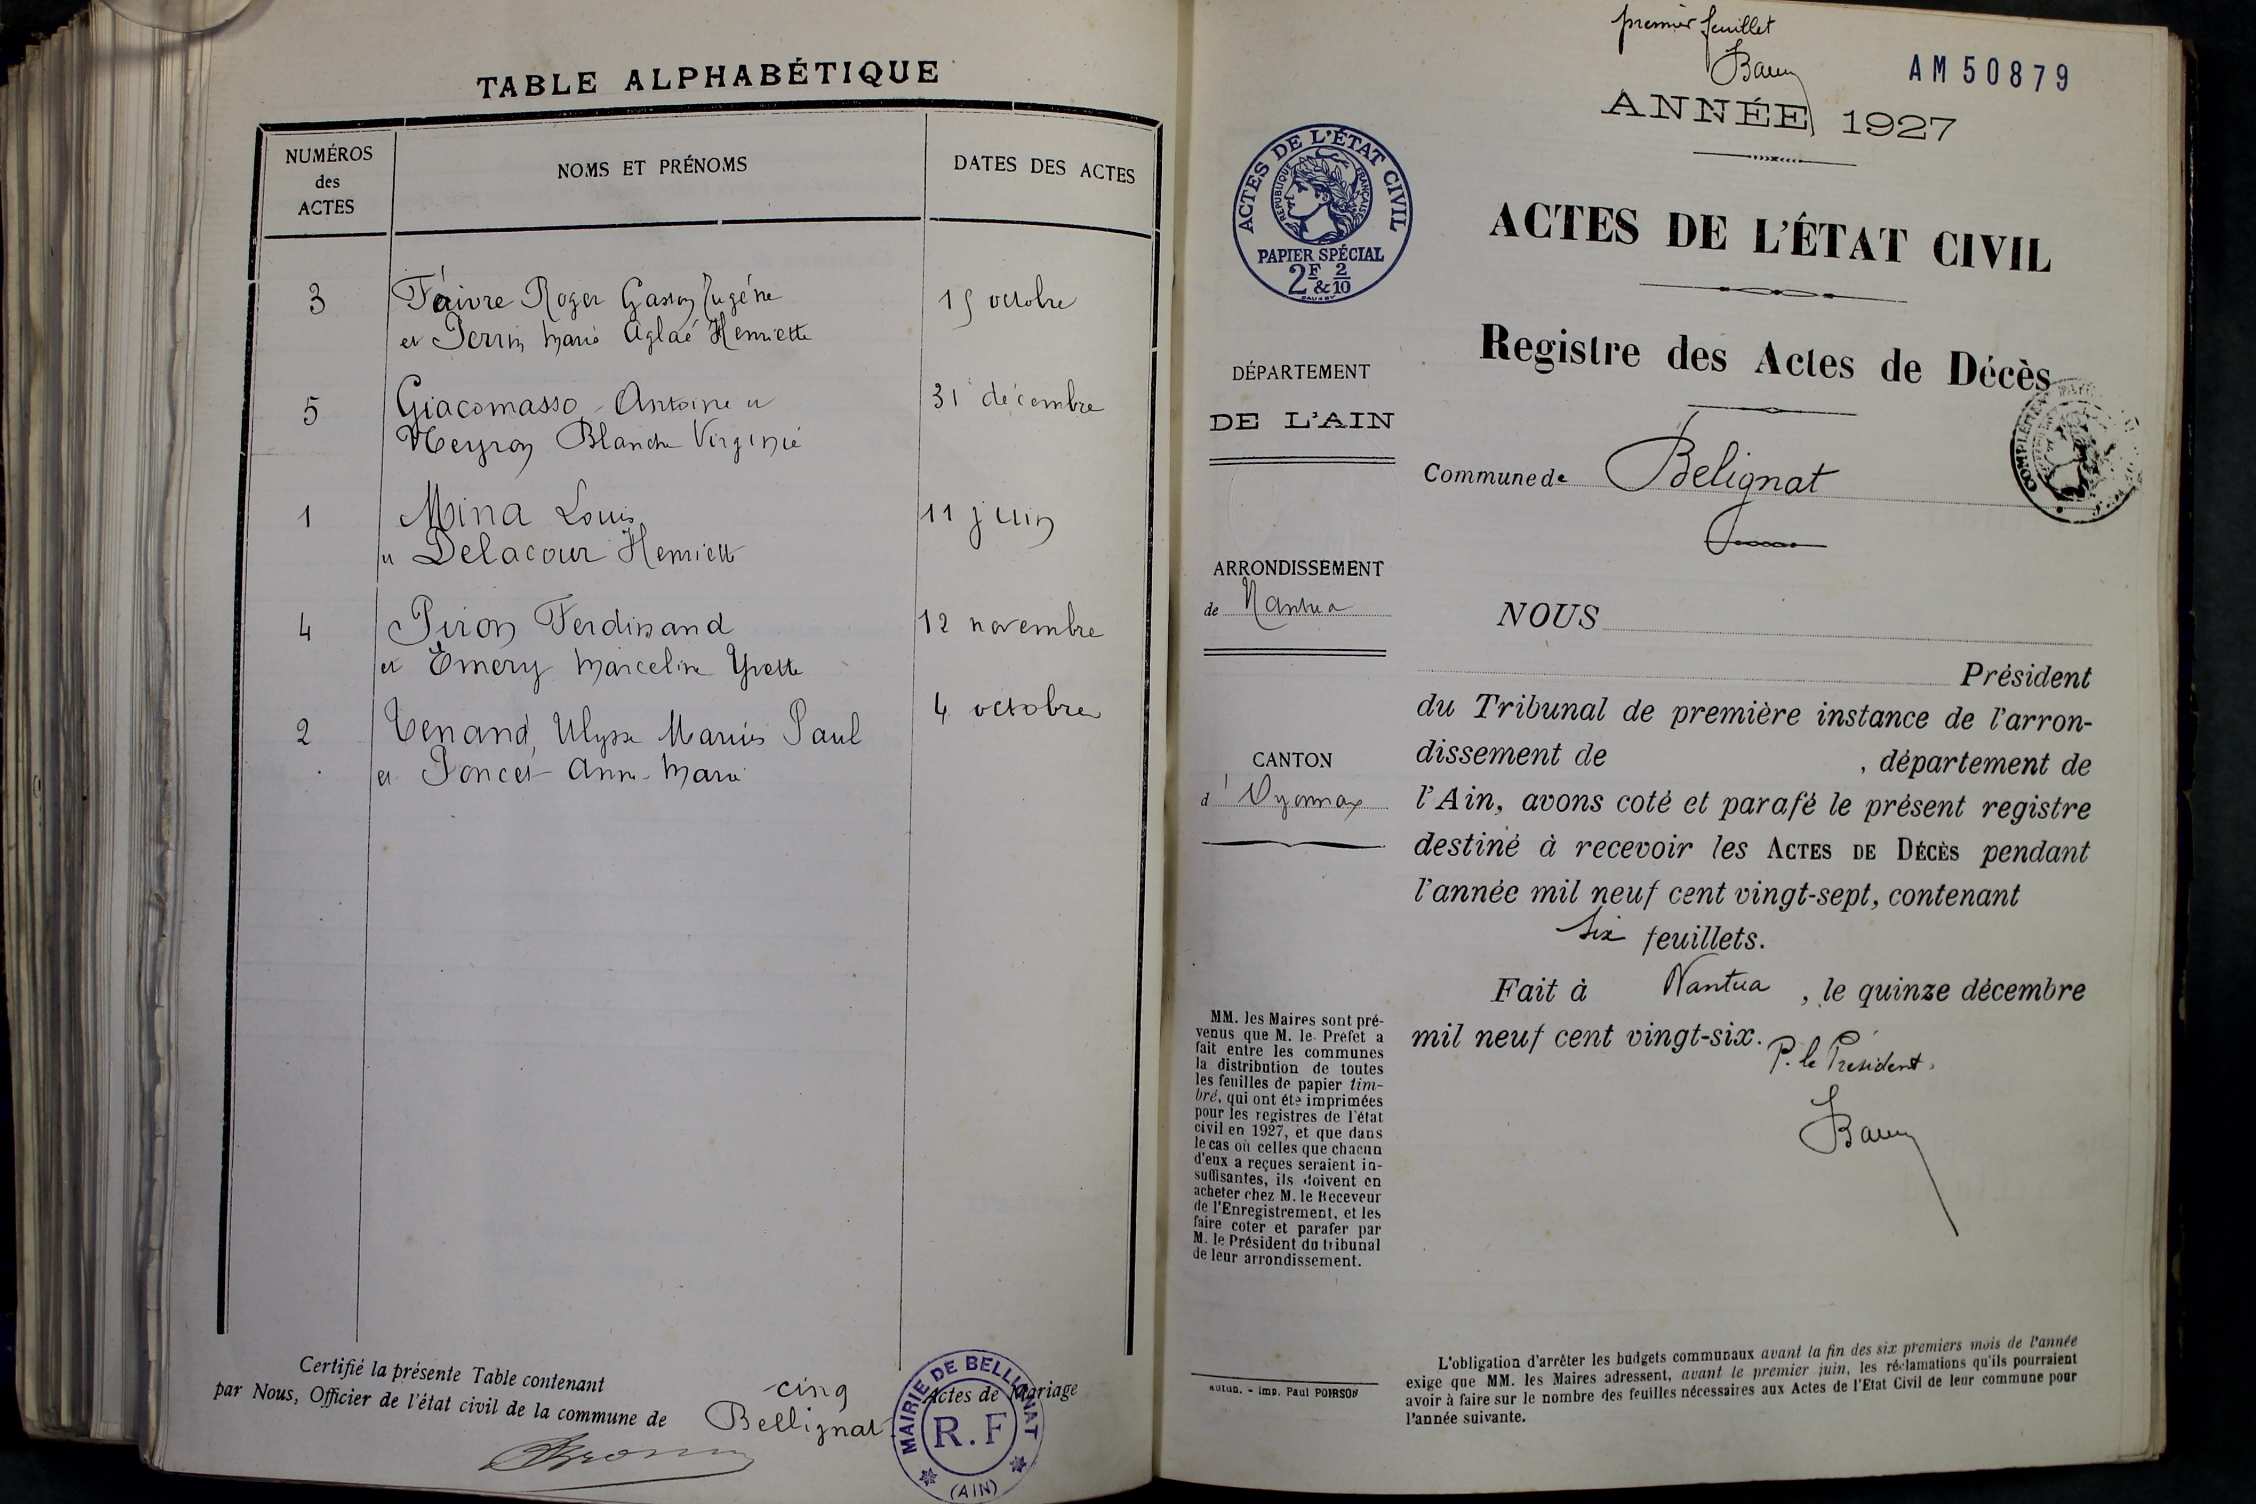 TABLE ALPHABÉTIQUE
NUMÉROS des ACTES
NOMS ET PRÉNOMS
DATES DES ACTES
3 Faivre Roger Gaston Eugène 15 octobre
et Perrin Marie Aglaé Henriette
5 Giacomasso Antoine et 31 décembre
Neyron Blanche Virginie
1 Mina Louis 11 juin
et Delacour Henriette
4 Piron Ferdinand 12 novembre
et Emery Marceline Yvette
2 Tenand, Ulysse Marius Paul 4 octobre
et Poncet Anne-Marie
Certifié la présente Table contenant cinq Actes de Mariage
par Nous, Officier de l'état civil de la commune de Bellignat
MAIRIE DE BELLIGNAT
R.F
(AIN)
premier feuillet
AM 50879
ANNÉE 1927
ACTES DE L'ÉTAT CIVIL
RÉPUBLIQUE FRANÇAISE
PAPIER SPÉCIAL
2F & 2/10
ACTES DE L'ÉTAT CIVIL
Registre des Actes de Décès
DÉPARTEMENT
DE L'AIN
Commune de Belignat
ARRONDISSEMENT
de Nantua
CANTON
d'Oyonnax
NOUS
Président
du Tribunal de première instance de l'arron-
dissement de , département de
l'Ain, avons coté et parafé le présent registre
destiné à recevoir les ACTES DE DÉCÈS pendant
l'année mil neuf cent vingt-sept, contenant
six feuillets.
Fait à Nantua, le quinze décembre
mil neuf cent vingt-six.
P. le Président.
MM. les Maires sont pré-
venus que M. le Préfet a
fait entre les communes
la distribution de toutes
les feuilles de papier tim-
bré, qui ont été imprimées
pour les registres de l'état
civil en 1927, et que dans
le cas où celles que chacun
d'eux a reçues seraient in-
suffisantes, ils doivent en
acheter chez M. le Receveur
de l'Enregistrement, et les
faire coter et parafer par
M. le Président du tribunal
de leur arrondissement.
Autun. - Imp. Paul POIRSON
L'obligation d'arrêter les budgets communaux avant la fin des six premiers mois de l'année
exige que MM. les Maires adressent, avant le premier juin, les réclamations qu'ils pourraient
avoir à faire sur le nombre des feuilles nécessaires aux Actes de l'Etat Civil de leur commune pour
l'année suivante.